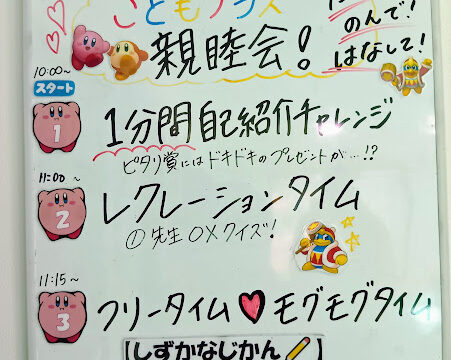 こどもプラス
親睦会!
のんで!
はなして!
10:00~
スタート
1
1分間自己紹介チャレンジ
ピタリ賞にはドキドキのプレゼントが…!?
11:00~
2
レクレーションタイム
①先生〇×クイズ!
11:15~
3
フリータイム♥モグモグタイム
【しずかなじかん】